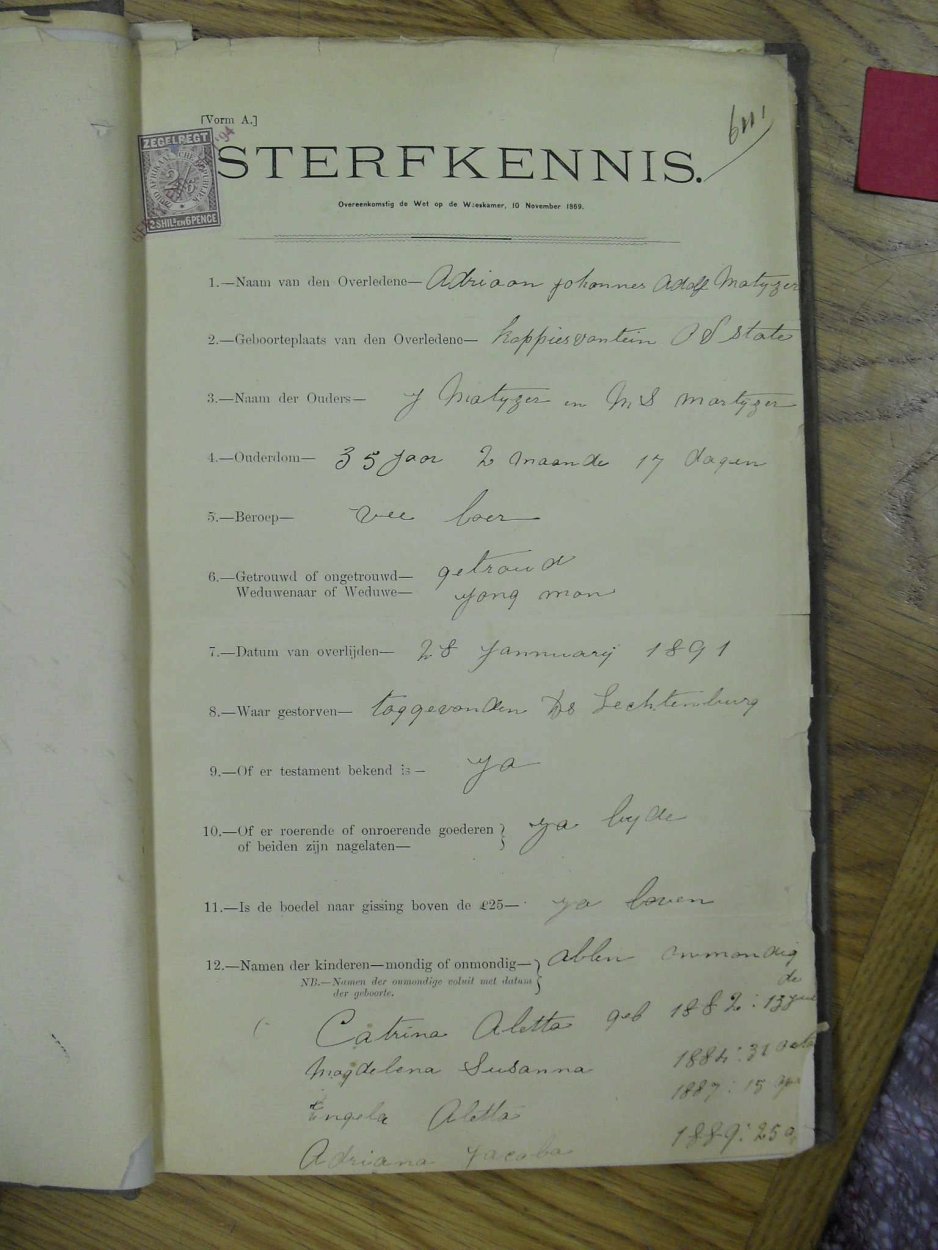 [Vorm A.]
6111
ZEGELREGT
2 SHILS EN 6 PENCE
STERFKENNIS.
Overeenkomstig de Wet op de Weeskamer, 10 November 1869.
1.—Naam van den Overledene— Adriaan Johannes Adolf Matyzer
2.—Geboorteplaats van den Overledene— Koppiesvontein O V State
3.—Naam der Ouders— J Matyzer en M S Martyzer
4.—Ouderdom— 35 Jaar 2 maande 17 dagen
5.—Beroep— vee boer
6.—Getrouwd of ongetrouwd— getroud
Weduwenaar of Weduwe— Jong man
7.—Datum van overlijden— 28 Jannuarij 1891
8.—Waar gestorven— Ds Lechtenburg
9.—Of er testament bekend is— Ja
10.—Of er roerende of onroerende goederen } Ja byde
of beiden zijn nagelaten—
11.—Is de boedel naar gissing boven de £25— Ja boven
12.—Namen der kinderen—mondig of onmondig— } allen onmondig
NB.—Namen der onmondige voluit met datum
der geboorte.
de
Catrina Aletta geb 1882: 13
Magdelena Susanna 1884: 31
Engela Aletta 1887: 15
Adriana Jacoba 1889: 25